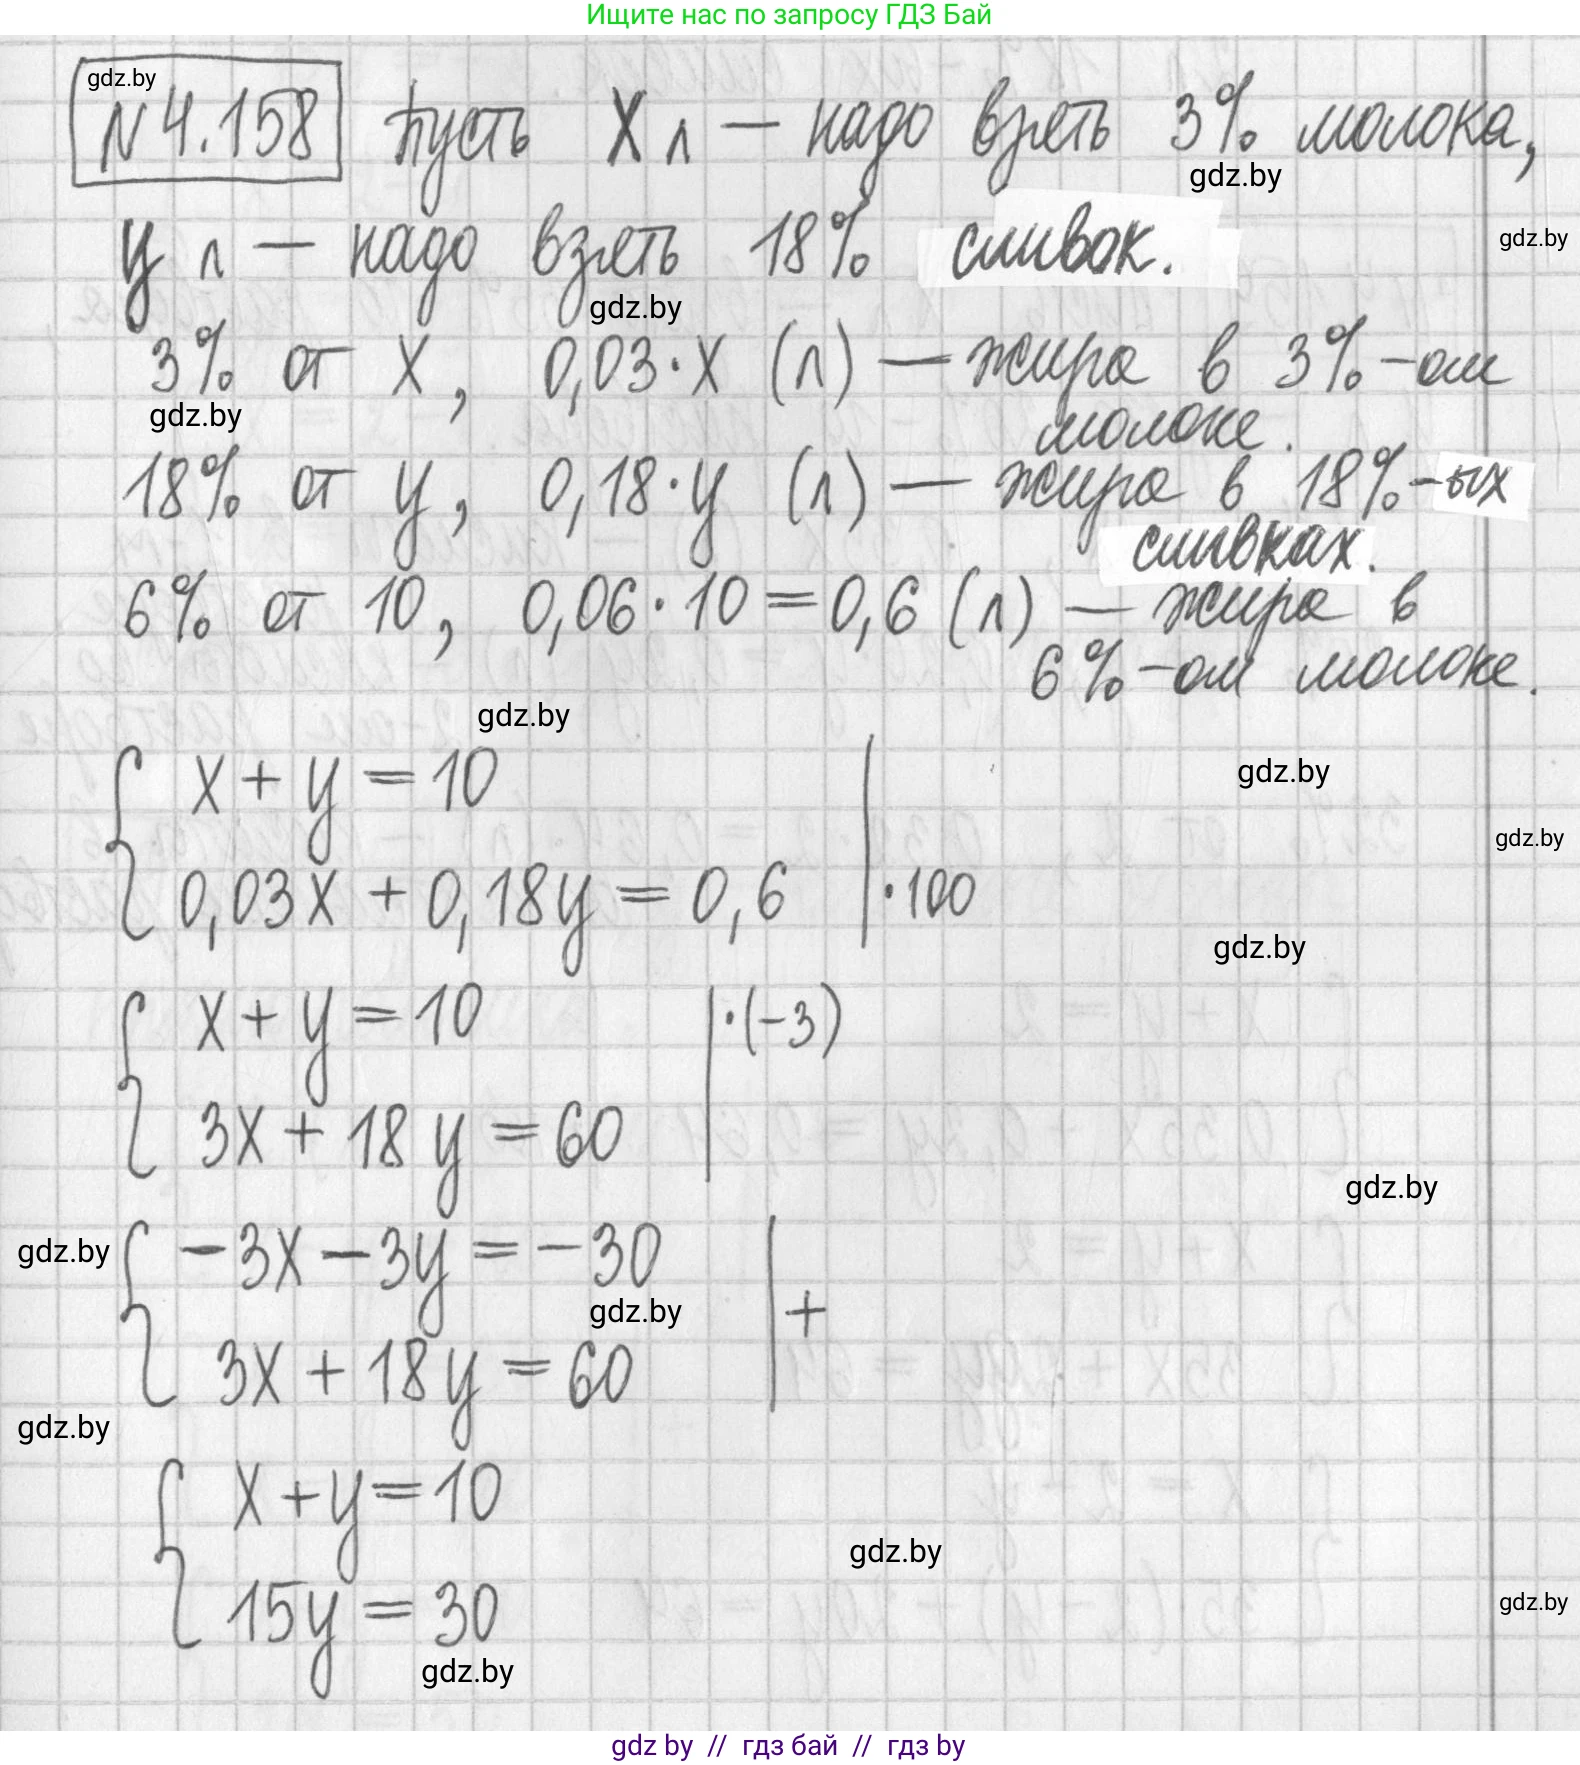 Ищите нас по запросу ГДЗ Бай
gdz.by
N 4.158 Пусть X л — надо взять 3% молока,
gdz.by
y л — надо взять 18% сливок.
gdz.by
gdz.by
3% от x, 0,03·x (л) — жира в 3%-ом
молоке.
gdz.by
18% от y, 0,18·y (л) — жира в 18%-ых
сливках.
6% от 10, 0,06·10=0,6 (л) — жира в
6%-ом молоке.
gdz.by
x+y=10
gdz.by
gdz.by
0,03x+0,18y=0,6 |·100
gdz.by
x+y=10 |·(-3)
3x+18y=60
gdz.by
gdz.by
-3x-3y=-30
gdz.by
+
3x+18y=60
gdz.by
x+y=10
gdz.by
15y=30
gdz.by
gdz.by
gdz by // гдз бай // гдз by